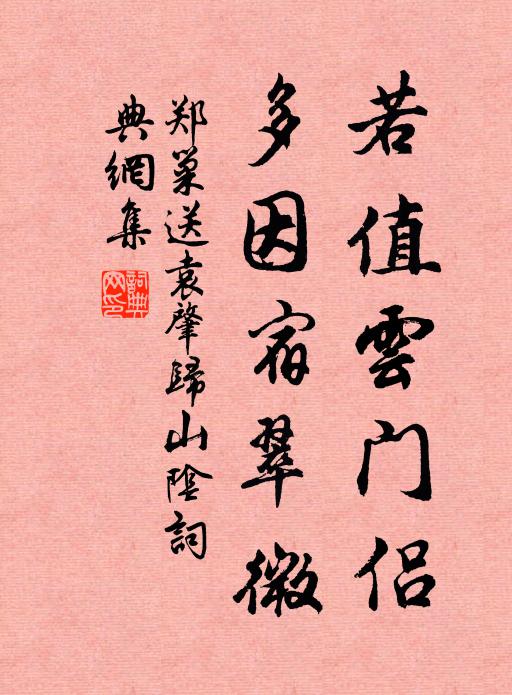 若值雲门侣
多因宿翠微
郑巢送袁肇歸山陰詞
典網集
詞典网印